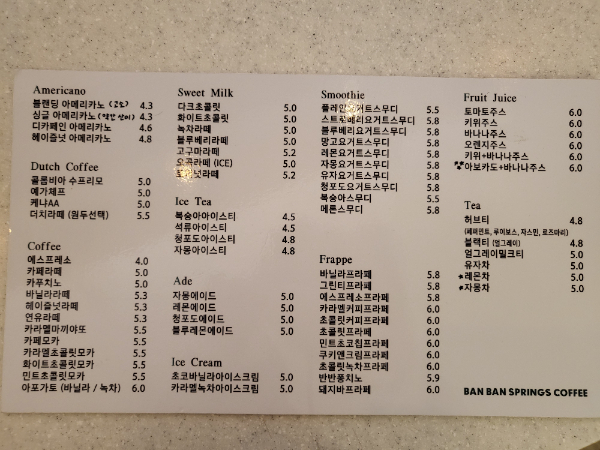 Americano
블랜딩 아메리카노 (고소) 4.3
싱글 아메리카노 (약간 산미) 4.3
디카페인 아메리카노 4.6
헤이즐넛 아메리카노 4.8
Dutch Coffee
콜롬비아 수프리모 5.0
예가체프 5.0
케냐AA 5.0
더치라떼 (원두선택) 5.5
Coffee
에스프레소 4.0
카페라떼 5.0
카푸치노 5.0
바닐라라떼 5.3
헤이즐넛라떼 5.3
연유라떼 5.3
카라멜마끼야또 5.5
카페모카 5.5
카라멜초콜릿모카 5.5
화이트초콜릿모카 5.5
민트초콜릿모카 5.5
아포가토 (바닐라 / 녹차) 6.0
Sweet Milk
다크초콜릿 5.0
화이트초콜릿 5.0
녹차라떼 5.0
블루베리라떼 5.0
고구마라떼 5.2
오곡라떼 (ICE) 5.0
넛라떼 5.2
Ice Tea
복숭아아이스티 4.5
석류아이스티 4.5
청포도아이스티 4.8
자몽아이스티 4.8
Ade
자몽에이드 5.0
레몬에이드 5.0
청포도에이드 5.0
블루레몬에이드 5.0
Ice Cream
초코바닐라아이스크림 5.0
카라멜녹차아이스크림 5.0
Smoothie
플레인요거트스무디 5.5
스트로베리요거트스무디 5.8
블루베리요거트스무디 5.8
망고요거트스무디 5.8
레몬요거트스무디 5.8
자몽요거트스무디 5.8
유자요거트스무디 5.8
청포도요거트스무디 5.8
복숭아스무디 5.5
메론스무디 5.8
Frappe
바닐라프라페 5.8
그린티프라페 5.8
에스프레소프라페 5.8
카라멜커피프라페 6.0
초콜릿커피프라페 6.0
초콜릿프라페 6.0
민트초코칩프라페 6.0
쿠키앤크림프라페 6.0
초콜릿녹차프라페 6.0
반반퐁치노 5.9
돼지바프라페 6.0
Fruit Juice
토마토주스 6.0
키위주스 6.0
바나나주스 6.0
오렌지주스 6.0
키위+바나나주스 6.0
아보카도+바나나주스 6.0
Tea
허브티 4.8
(페퍼민트, 루이보스, 자스민, 로즈마리)
블랙티 (얼그레이) 4.8
얼그레이밀크티 5.0
유자차 5.0
*레몬차 5.0
*자몽차 5.0
BAN BAN SPRINGS COFFEE